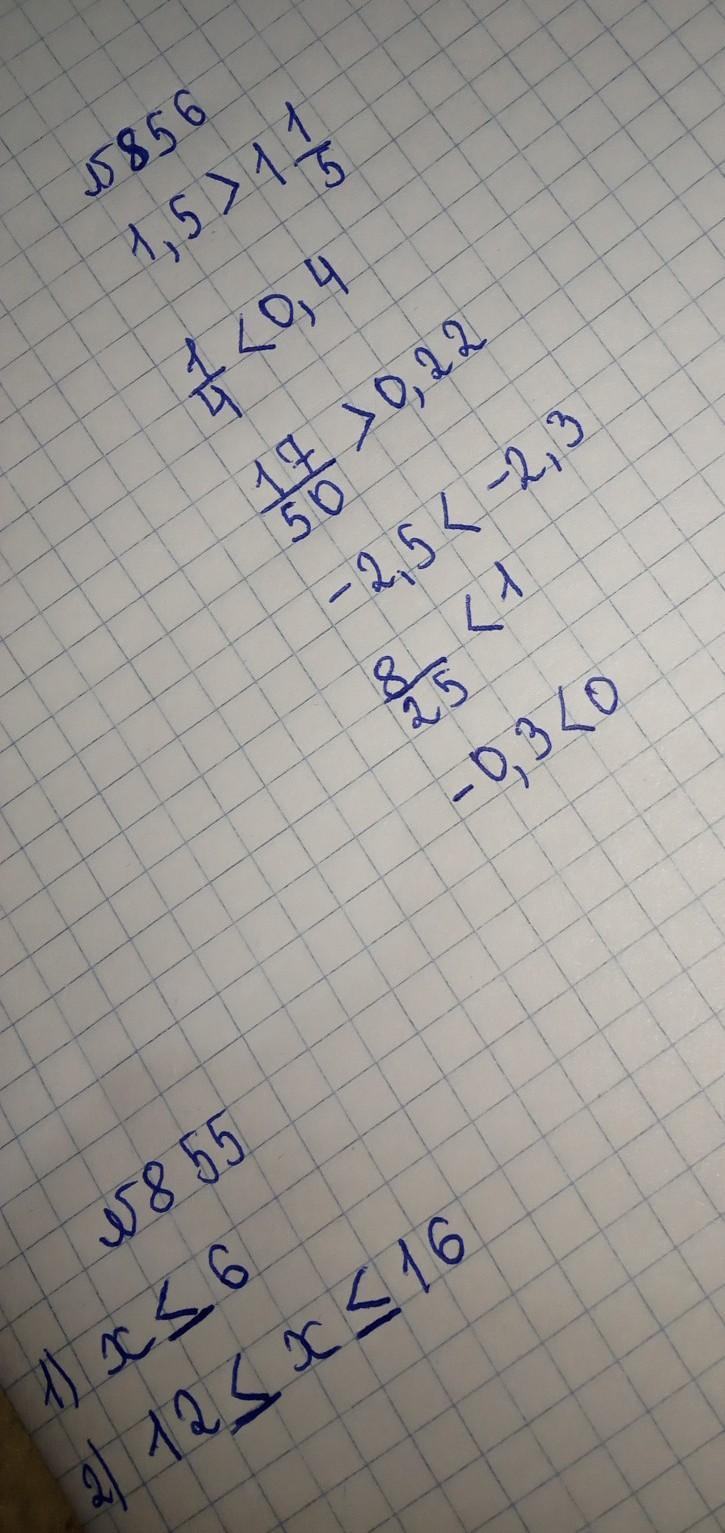 №856
1,5 > 1 1/5
1/4 < 0,4
17/50 > 0,22
-2,5 < -2,3
8/25 < 1
-0,3 < 0
№855
1) x ≤ 6
2) 12 ≤ x ≤ 16